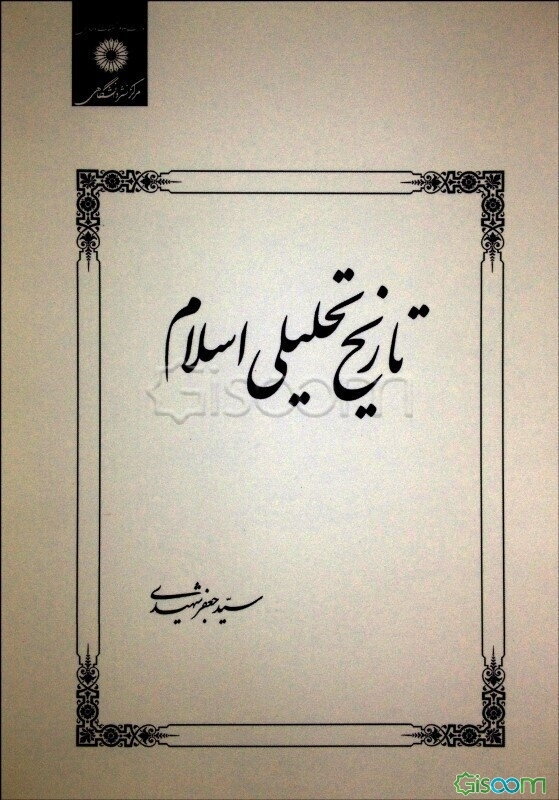 مرکز نشر دانشگاهی
تاریخ تحلیلی اسلام
Gisoom
سیّد جعفر شهیدی
Gisoom